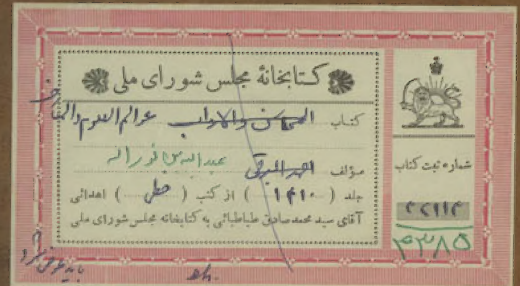 کتابخانهٔ مجلس شورای ملی
کتاب المحاسن والاداب عوالم العلوم والمعارف
مؤلف احمد البرقی عبدالله بن نورالله
جلد (۱۴۱۰) از کتب (خطی) اهدائی
آقای سید محمدصادق طباطبائی به کتابخانه مجلس شورای ملی
شماره ثبت کتاب
۴۲۹۱۴
۴۳۸۵
باید عوض شود